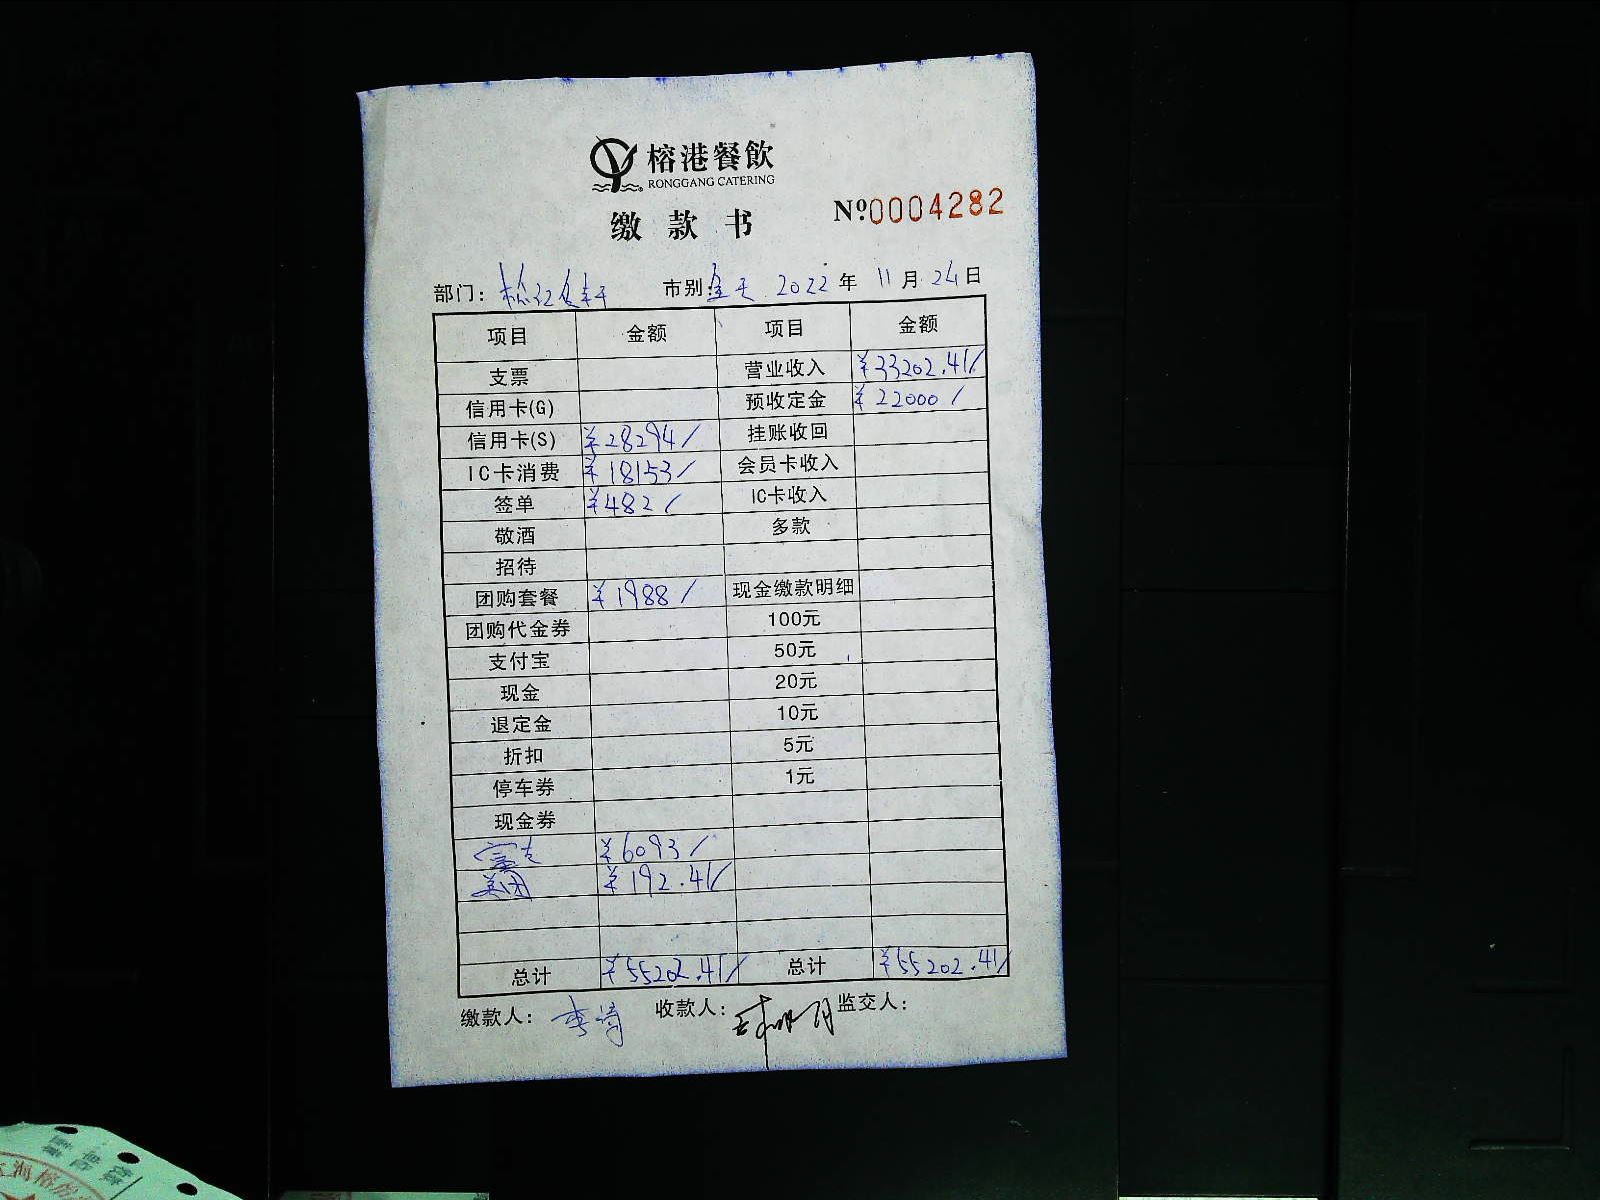 榕港餐飲
RONGGANG CATERING
缴款书 Nº0004282
部门： 市别：全天 2022年11月24日
项目 金额 项目 金额
支票 营业收入 ¥33202.41/
信用卡(G) 预收定金 ¥22000/
信用卡(S) ¥28294/ 挂账收回
IC卡消费 ¥18153/ 会员卡收入
签单 ¥482/ IC卡收入
敬酒 多款
招待
团购套餐 ¥1988/ 现金缴款明细
团购代金券 100元
支付宝 50元
现金 20元
退定金 10元
折扣 5元
停车券 1元
现金券
¥6093/
美团 ¥192.41/
总计 ¥55202.41/ 总计 ¥55202.41/
缴款人： 收款人： 监交人：